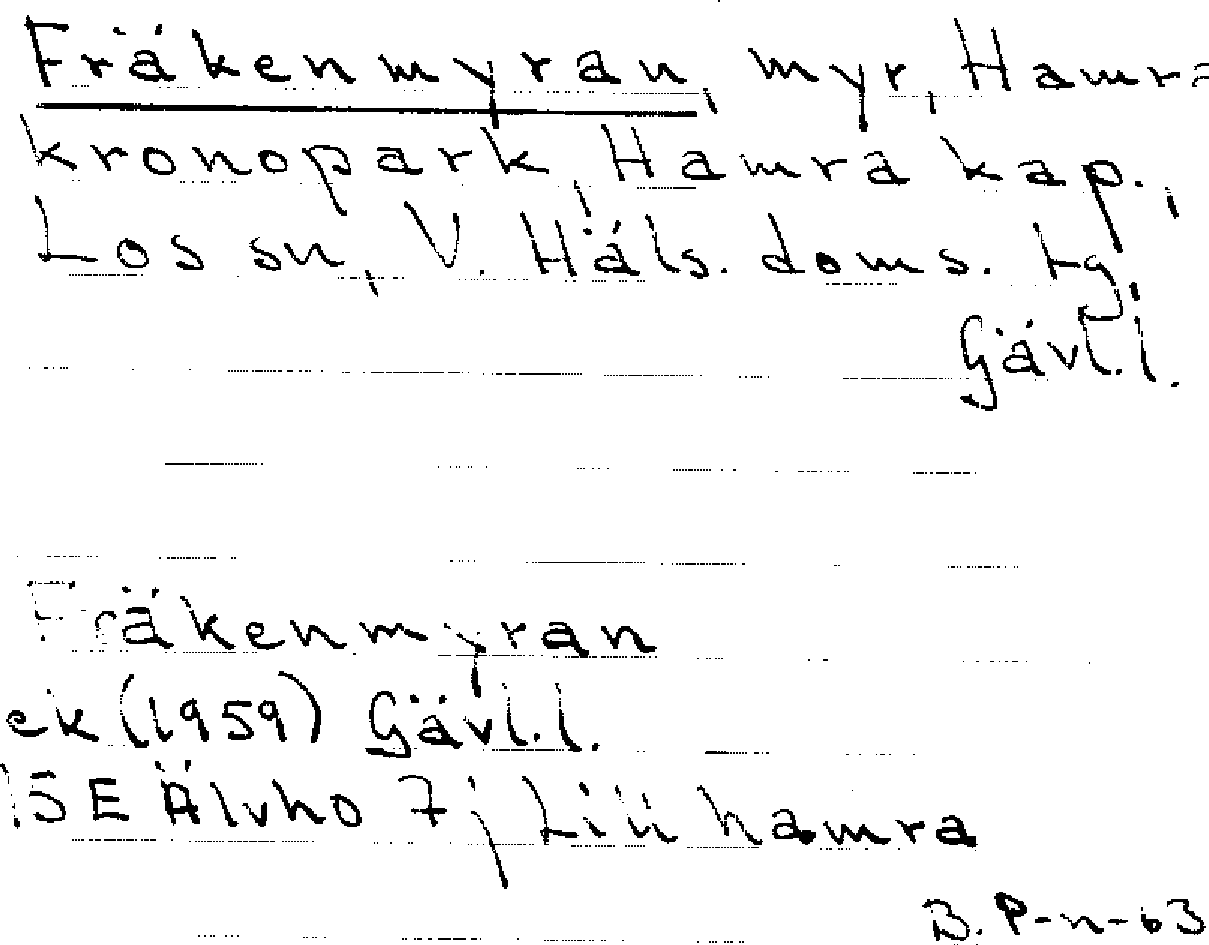 Fräkenmyran, myr, Hamra
kronopark, Hamra kap.,
Los sn, V. Häls. doms. tg
Gävl.l.
Fräkenmyran
ek (1959) Gävl.l.
15E Älvho 7; Lillhamra
B. P-n-63